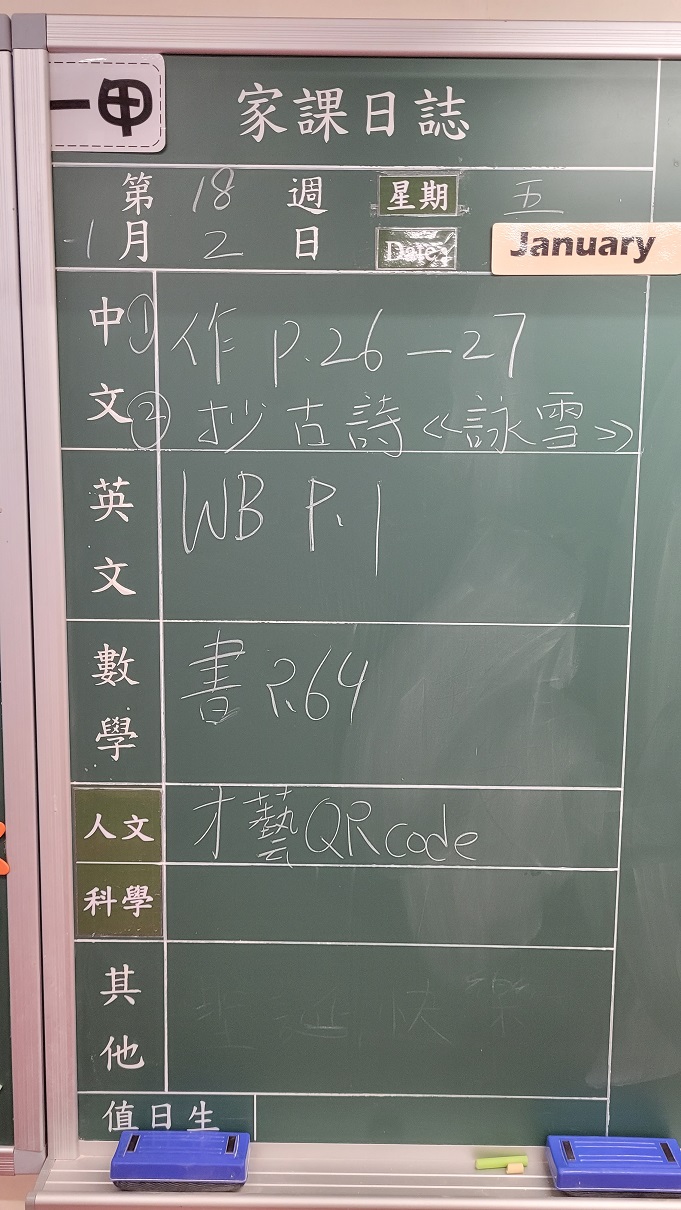 一甲
家課日誌
第 18 週 星期 五
1 月 2 日 Date: January
中文 ① 作 P.26－27
② 抄古詩《詠雪》
英文 WB P.1
數學 書 P.64
人文 才藝QR code
科學
其他 聖誕快樂
值日生